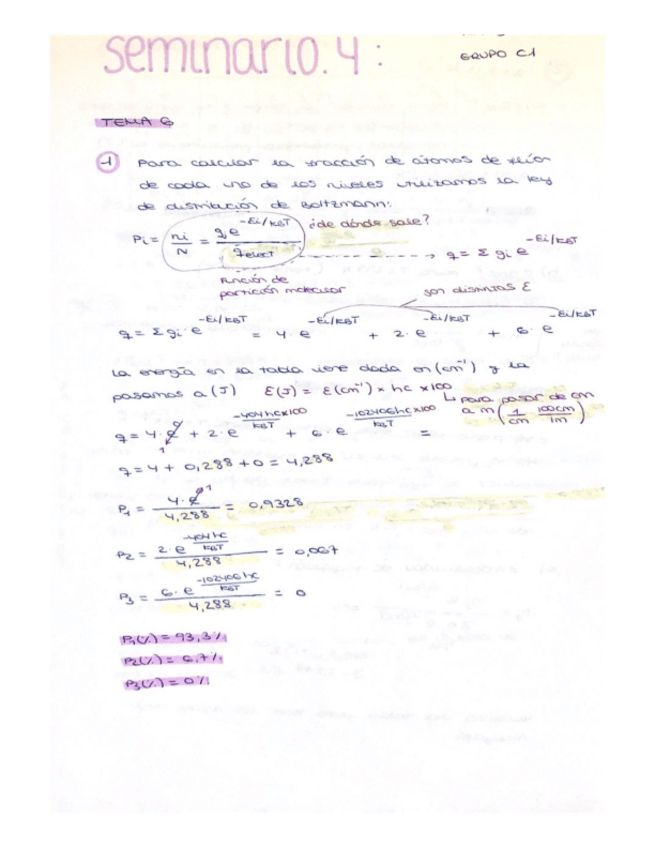 seminario.4:
GRUPO C1
TEMA 6
1 Para calcular la fracción de átomos de flúor
de cada uno de los niveles utilizamos la ley
de distribución de Boltzmann:
Pi = ni/N = gi e^(-Ei/KBT) / qelect ¿de dónde sale?
q = Σ gi e^(-Ei/KBT)
Función de
partición molecular
son distintas E
q = Σ gi · e^(-Ei/KBT) = 4 · e^(-Ei/KBT) + 2 · e^(-Ei/KBT) + 6 · e^(-Ei/KBT)
La energía en la tabla viene dada en (cm⁻¹) y la
pasamos a (J) E(J) = E(cm⁻¹) × hc × 100
para pasar de cm
a m (1/cm 100cm/1m)
q = 4 · e^0 + 2 · e^(-404hc×100/KBT) + 6 · e^(-102406hc×100/KBT) =
1
q = 4 + 0,288 + 0 = 4,288
P1 = 4 · e^0 1 / 4,288 = 0,9328
P2 = 2 · e^(-404hc/KBT) / 4,288 = 0,067
P3 = 6 · e^(-102406hc/KBT) / 4,288 = 0
P1(%) = 93,3%
P2(%) = 6,7%
P3(%) = 0%